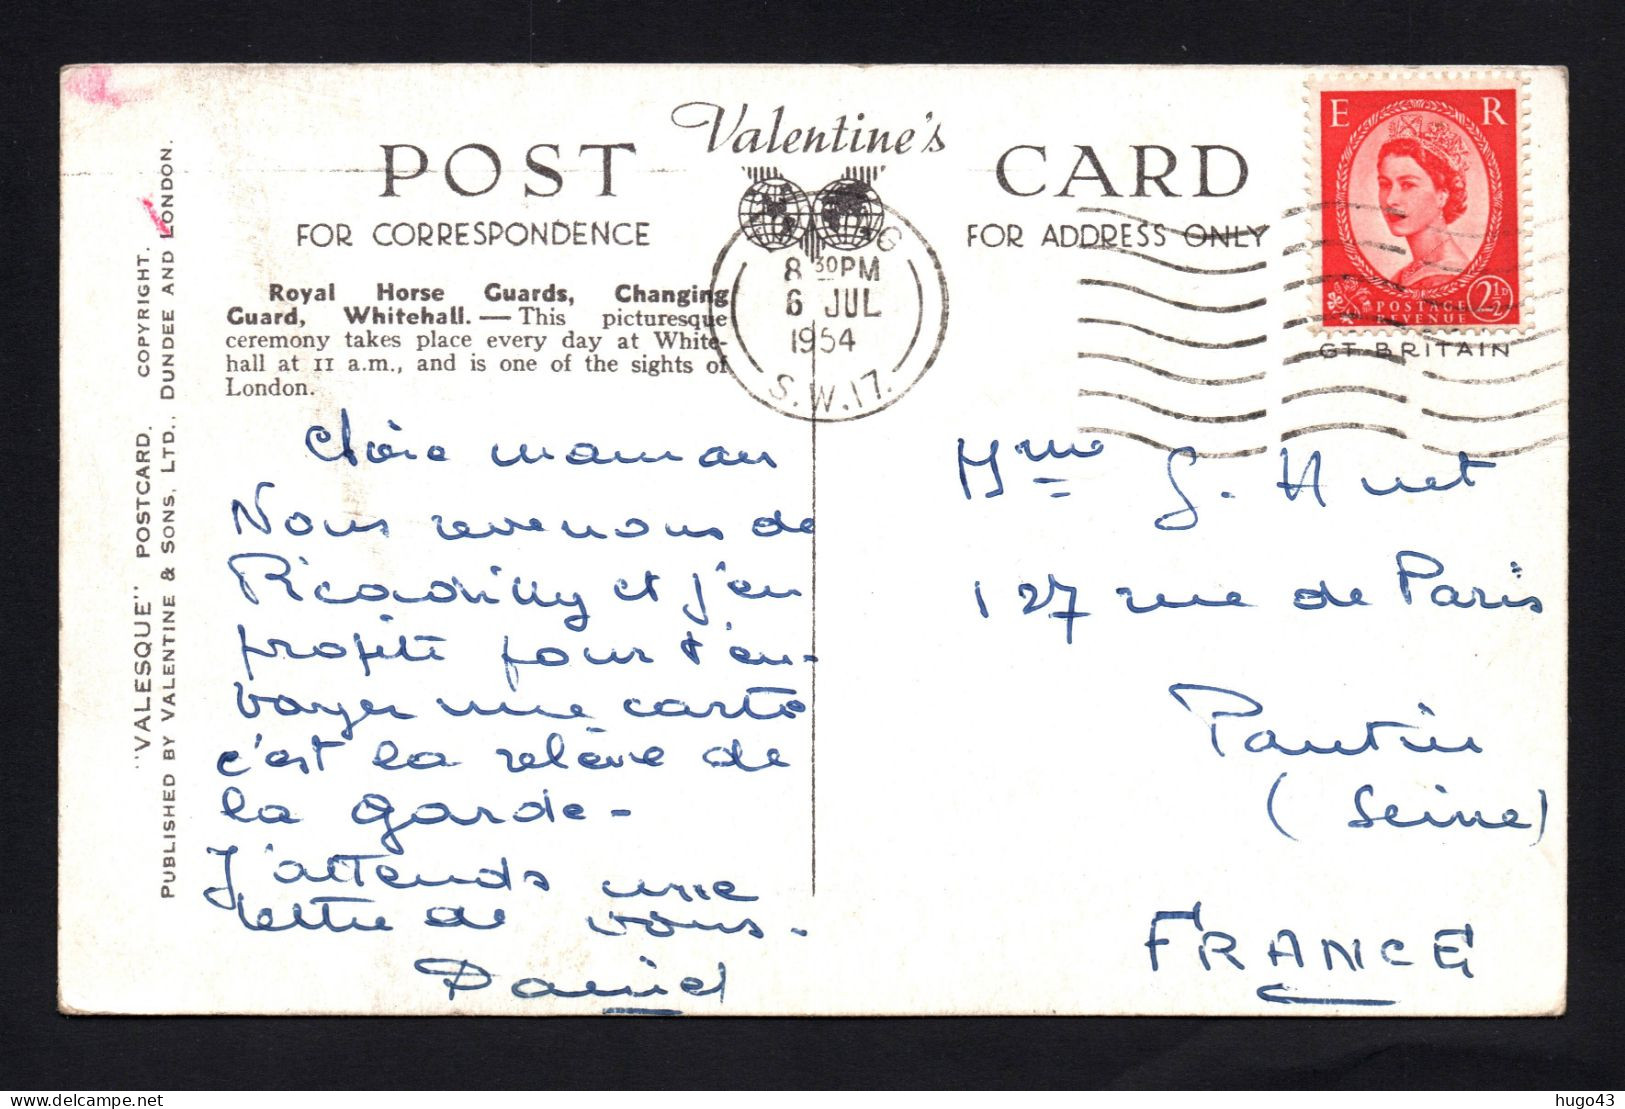 Valentine's
POST CARD
FOR CORRESPONDENCE
FOR ADDRESS ONLY
Royal Horse Guards, Changing
Guard, Whitehall. — This picturesque
ceremony takes place every day at White-
hall at 11 a.m., and is one of the sights of
London.
"VALESQUE" POSTCARD. COPYRIGHT.
PUBLISHED BY VALENTINE & SONS, LTD., DUNDEE AND LONDON.
8 30 PM
6 JUL
1954
S.W.17.
E R
POSTAGE
REVENUE
2½D
GT BRITAIN
Chère maman
Nous revenons de
Picadilly et j'en
profite pour t'en-
voyer une carte
c'est la relève de
la garde -
J'attends une
lettre de vous.
Daniel
Mme G. Huet
127 rue de Paris
Pantin
(Seine)
FRANCE
hugo43